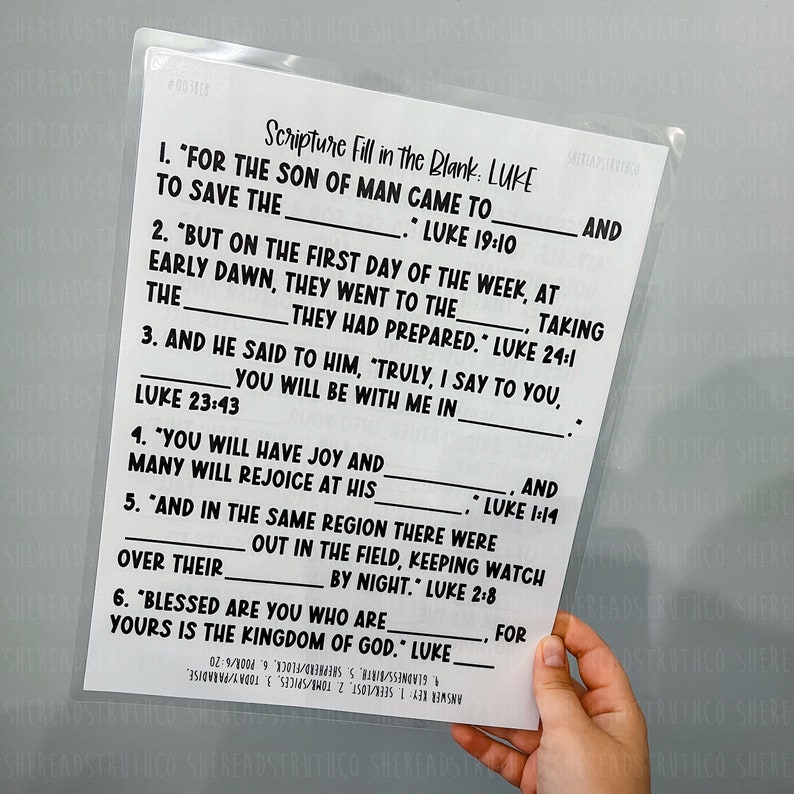 #003BEB
SHEREADSTRUTHCO
Scripture Fill in the Blank: LUKE
1. "FOR THE SON OF MAN CAME TO________ AND
TO SAVE THE __________." LUKE 19:10
2. "BUT ON THE FIRST DAY OF THE WEEK, AT
EARLY DAWN, THEY WENT TO THE______, TAKING
THE_________THEY HAD PREPARED." LUKE 24:1
3. AND HE SAID TO HIM, "TRULY, I SAY TO YOU,
________ YOU WILL BE WITH ME IN _________."
LUKE 23:43
4. "YOU WILL HAVE JOY AND__________, AND
MANY WILL REJOICE AT HIS_______," LUKE 1:14
5. "AND IN THE SAME REGION THERE WERE
__________ OUT IN THE FIELD, KEEPING WATCH
OVER THEIR________ BY NIGHT." LUKE 2:8
6. "BLESSED ARE YOU WHO ARE________, FOR
YOURS IS THE KINGDOM OF GOD." LUKE____
ANSWER KEY: 1. SEEK/LOST, 2. TOMB/SPICES, 3. TODAY/PARADISE,
4. GLADNESS/BIRTH, 5. SHEPHERD/FLOCK, 6. POOR/6:20